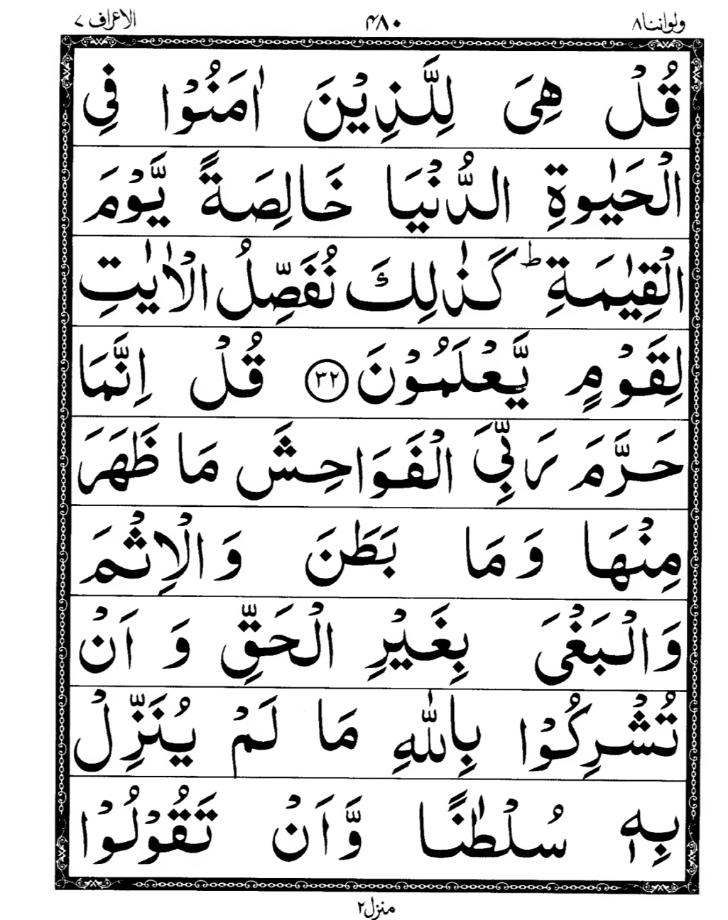 ولواننا ۸ ۴۸۰ الاعراف ۷
قُلْ هِىَ لِلَّذِيْنَ اٰمَنُوْا فِى
الْحَيٰوةِ الدُّنْيَا خَالِصَةً يَّوْمَ
الْقِيٰمَةِ ؕ كَذٰلِكَ نُفَصِّلُ الْاٰيٰتِ
لِقَوْمٍ يَّعْلَمُوْنَ ﴿۳۲﴾ قُلْ اِنَّمَا
حَرَّمَ رَبِّىَ الْفَوَاحِشَ مَا ظَهَرَ
مِنْهَا وَ مَا بَطَنَ وَ الْاِثْمَ
وَ الْبَغْىَ بِغَيْرِ الْحَقِّ وَ اَنْ
تُشْرِكُوْا بِاللّٰهِ مَا لَمْ يُنَزِّلْ
بِهٖ سُلْطٰنًا وَّ اَنْ تَقُوْلُوْا
منزل ۲